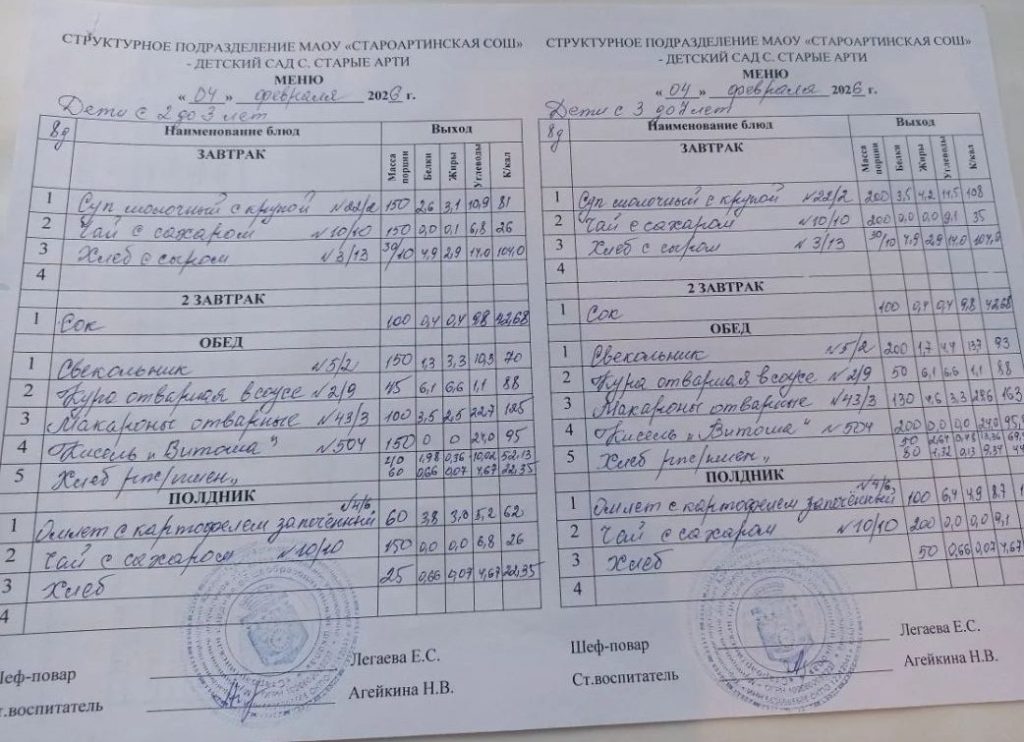 СТРУКТУРНОЕ ПОДРАЗДЕЛЕНИЕ МАОУ «СТАРОАРТИНСКАЯ СОШ»
- ДЕТСКИЙ САД С. СТАРЫЕ АРТИ
МЕНЮ
« 04 » февраля 2026 г.
Дети с 2 до 3 лет
8д Наименование блюд Выход
ЗАВТРАК Масса порции Белки Жиры Углеводы К/кал
1 Суп молочный с крупой №22/2 150 2,6 3,1 10,9 81
2 Чай с сахаром №10/10 150 0,0 0,1 6,8 26
3 Хлеб с сыром №3/13 30/10 4,9 2,9 14,0 104,0
4
2 ЗАВТРАК
1 Сок 100 0,4 0,4 9,8 42,68
ОБЕД
1 Свекольник №5/2 150 1,3 3,3 10,3 70
2 Кура отварная в соусе №2/9 45 6,1 6,6 1,1 88
3 Макароны отварные №43/3 100 3,5 2,5 22,7 125
4 Кисель „Витоша" №504 150 0 0 24,0 95
5 Хлеб рж/пшен„ 40 1,98 0,36 10,02 52,13
60 0,66 0,07 4,67 22,35
ПОЛДНИК
1 Омлет с картофелем запечённый №4/6 60 3,8 3,0 5,2 62
2 Чай с сахаром №10/10 150 0,0 0,0 6,8 26
3 Хлеб 25 0,66 0,07 4,67 22,35
4
Шеф-повар Легаева Е.С.
Ст.воспитатель Агейкина Н.В.
СТРУКТУРНОЕ ПОДРАЗДЕЛЕНИЕ МАОУ «СТАРОАРТИНСКАЯ СОШ»
- ДЕТСКИЙ САД С. СТАРЫЕ АРТИ
МЕНЮ
« 04 » февраля 2026 г.
Дети с 3 до 7 лет
8д Наименование блюд Выход
ЗАВТРАК Масса порции Белки Жиры Углеводы К/кал
1 Суп молочный с крупой №22/2 200 3,5 4,2 14,5 108
2 Чай с сахаром №10/10 200 0,0 0,0 9,1 35
3 Хлеб с сыром №3/13 30/10 4,9 2,9 14,0 104,0
4
2 ЗАВТРАК
1 Сок 100 0,4 0,4 9,8 42,68
ОБЕД
1 Свекольник №5/2 200 1,7 4,4 13,7 93
2 Кура отварная в соусе №2/9 50 6,1 6,6 1,1 88
3 Макароны отварные №43/3 130 4,6 3,3 28,6 163
4 Кисель „Витоша" №504 200 0,0 0,0 24,0 95,
5 Хлеб рж/пшен„ 50 2,64 0,48 13,36
80 1,32 0,13 9,34
ПОЛДНИК
1 Омлет с картофелем запечённый №4/6 100 6,4 4,9 8,7
2 Чай с сахаром №10/10 200 0,0 0,0 9,1
3 Хлеб 50 0,66 0,07 4,67
4
Шеф-повар Легаева Е.С.
Ст.воспитатель Агейкина Н.В.